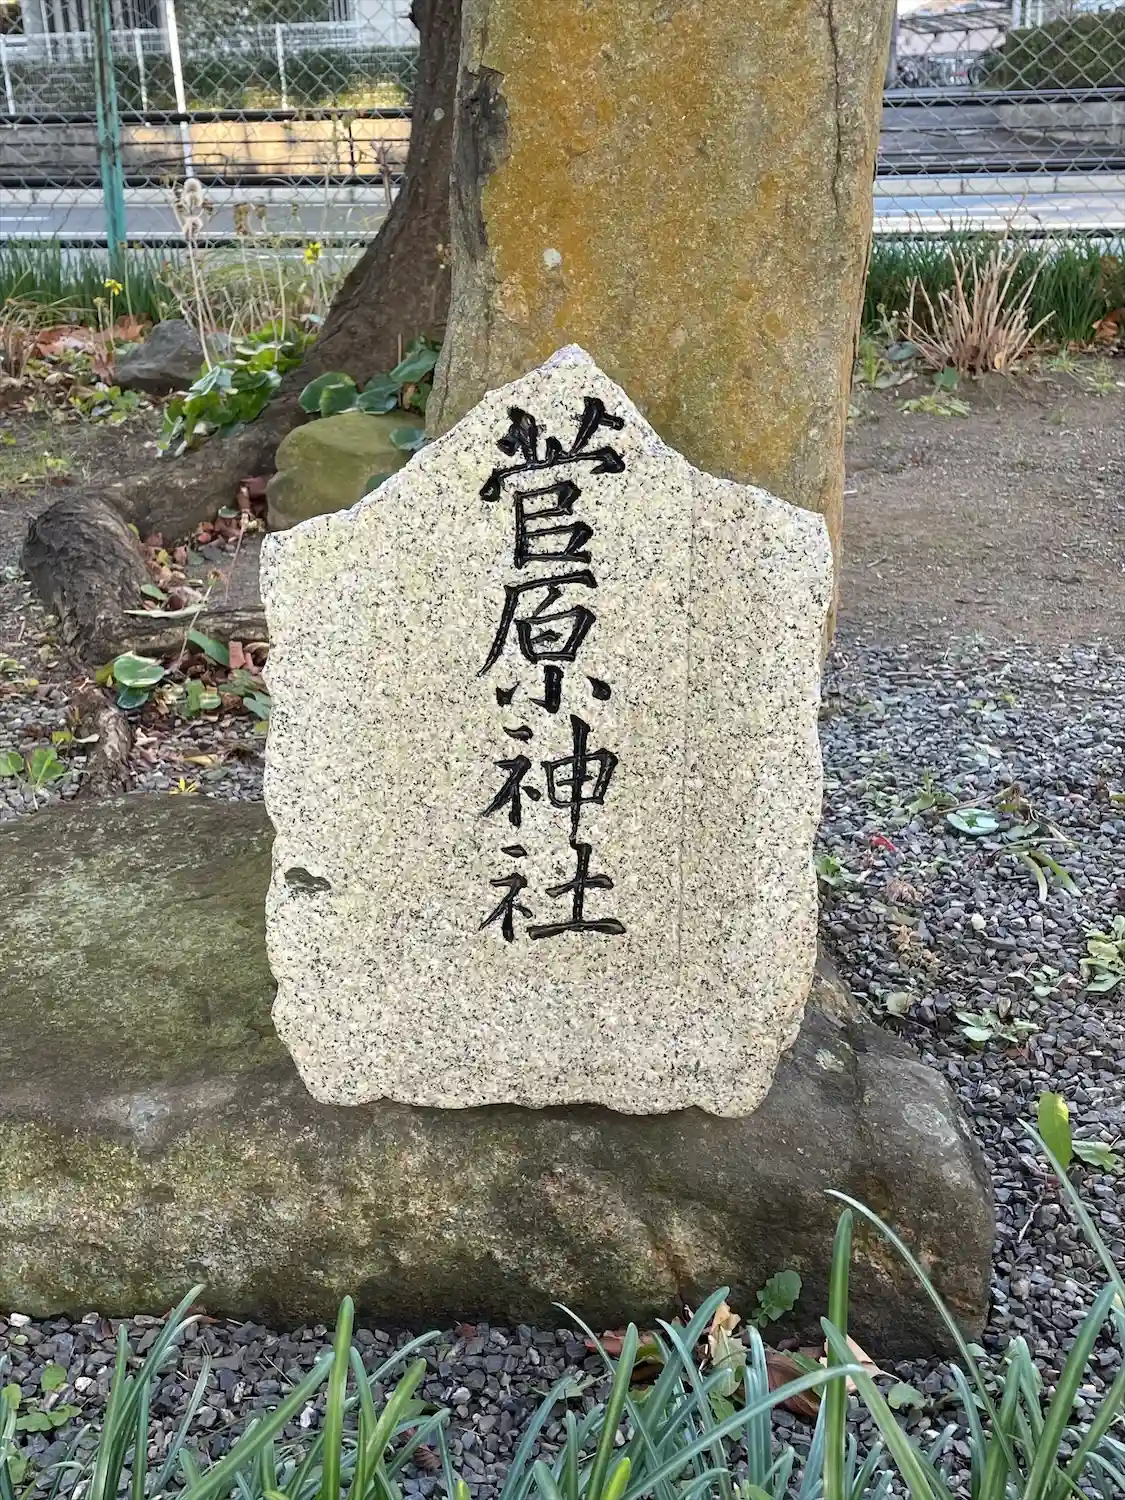 菅原神社